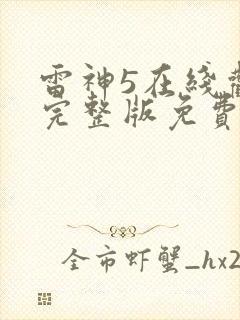 雷神5在綫
完整版免費
全市虾蟹_hx2